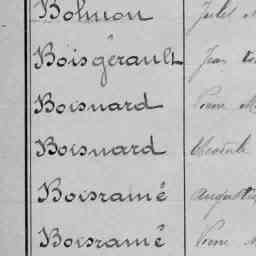 Bolmon Juliet
Boisgérault Jean
Boisnard Pierre M
Boisnard
Boisramé Augusti
Boisramé Pierre M